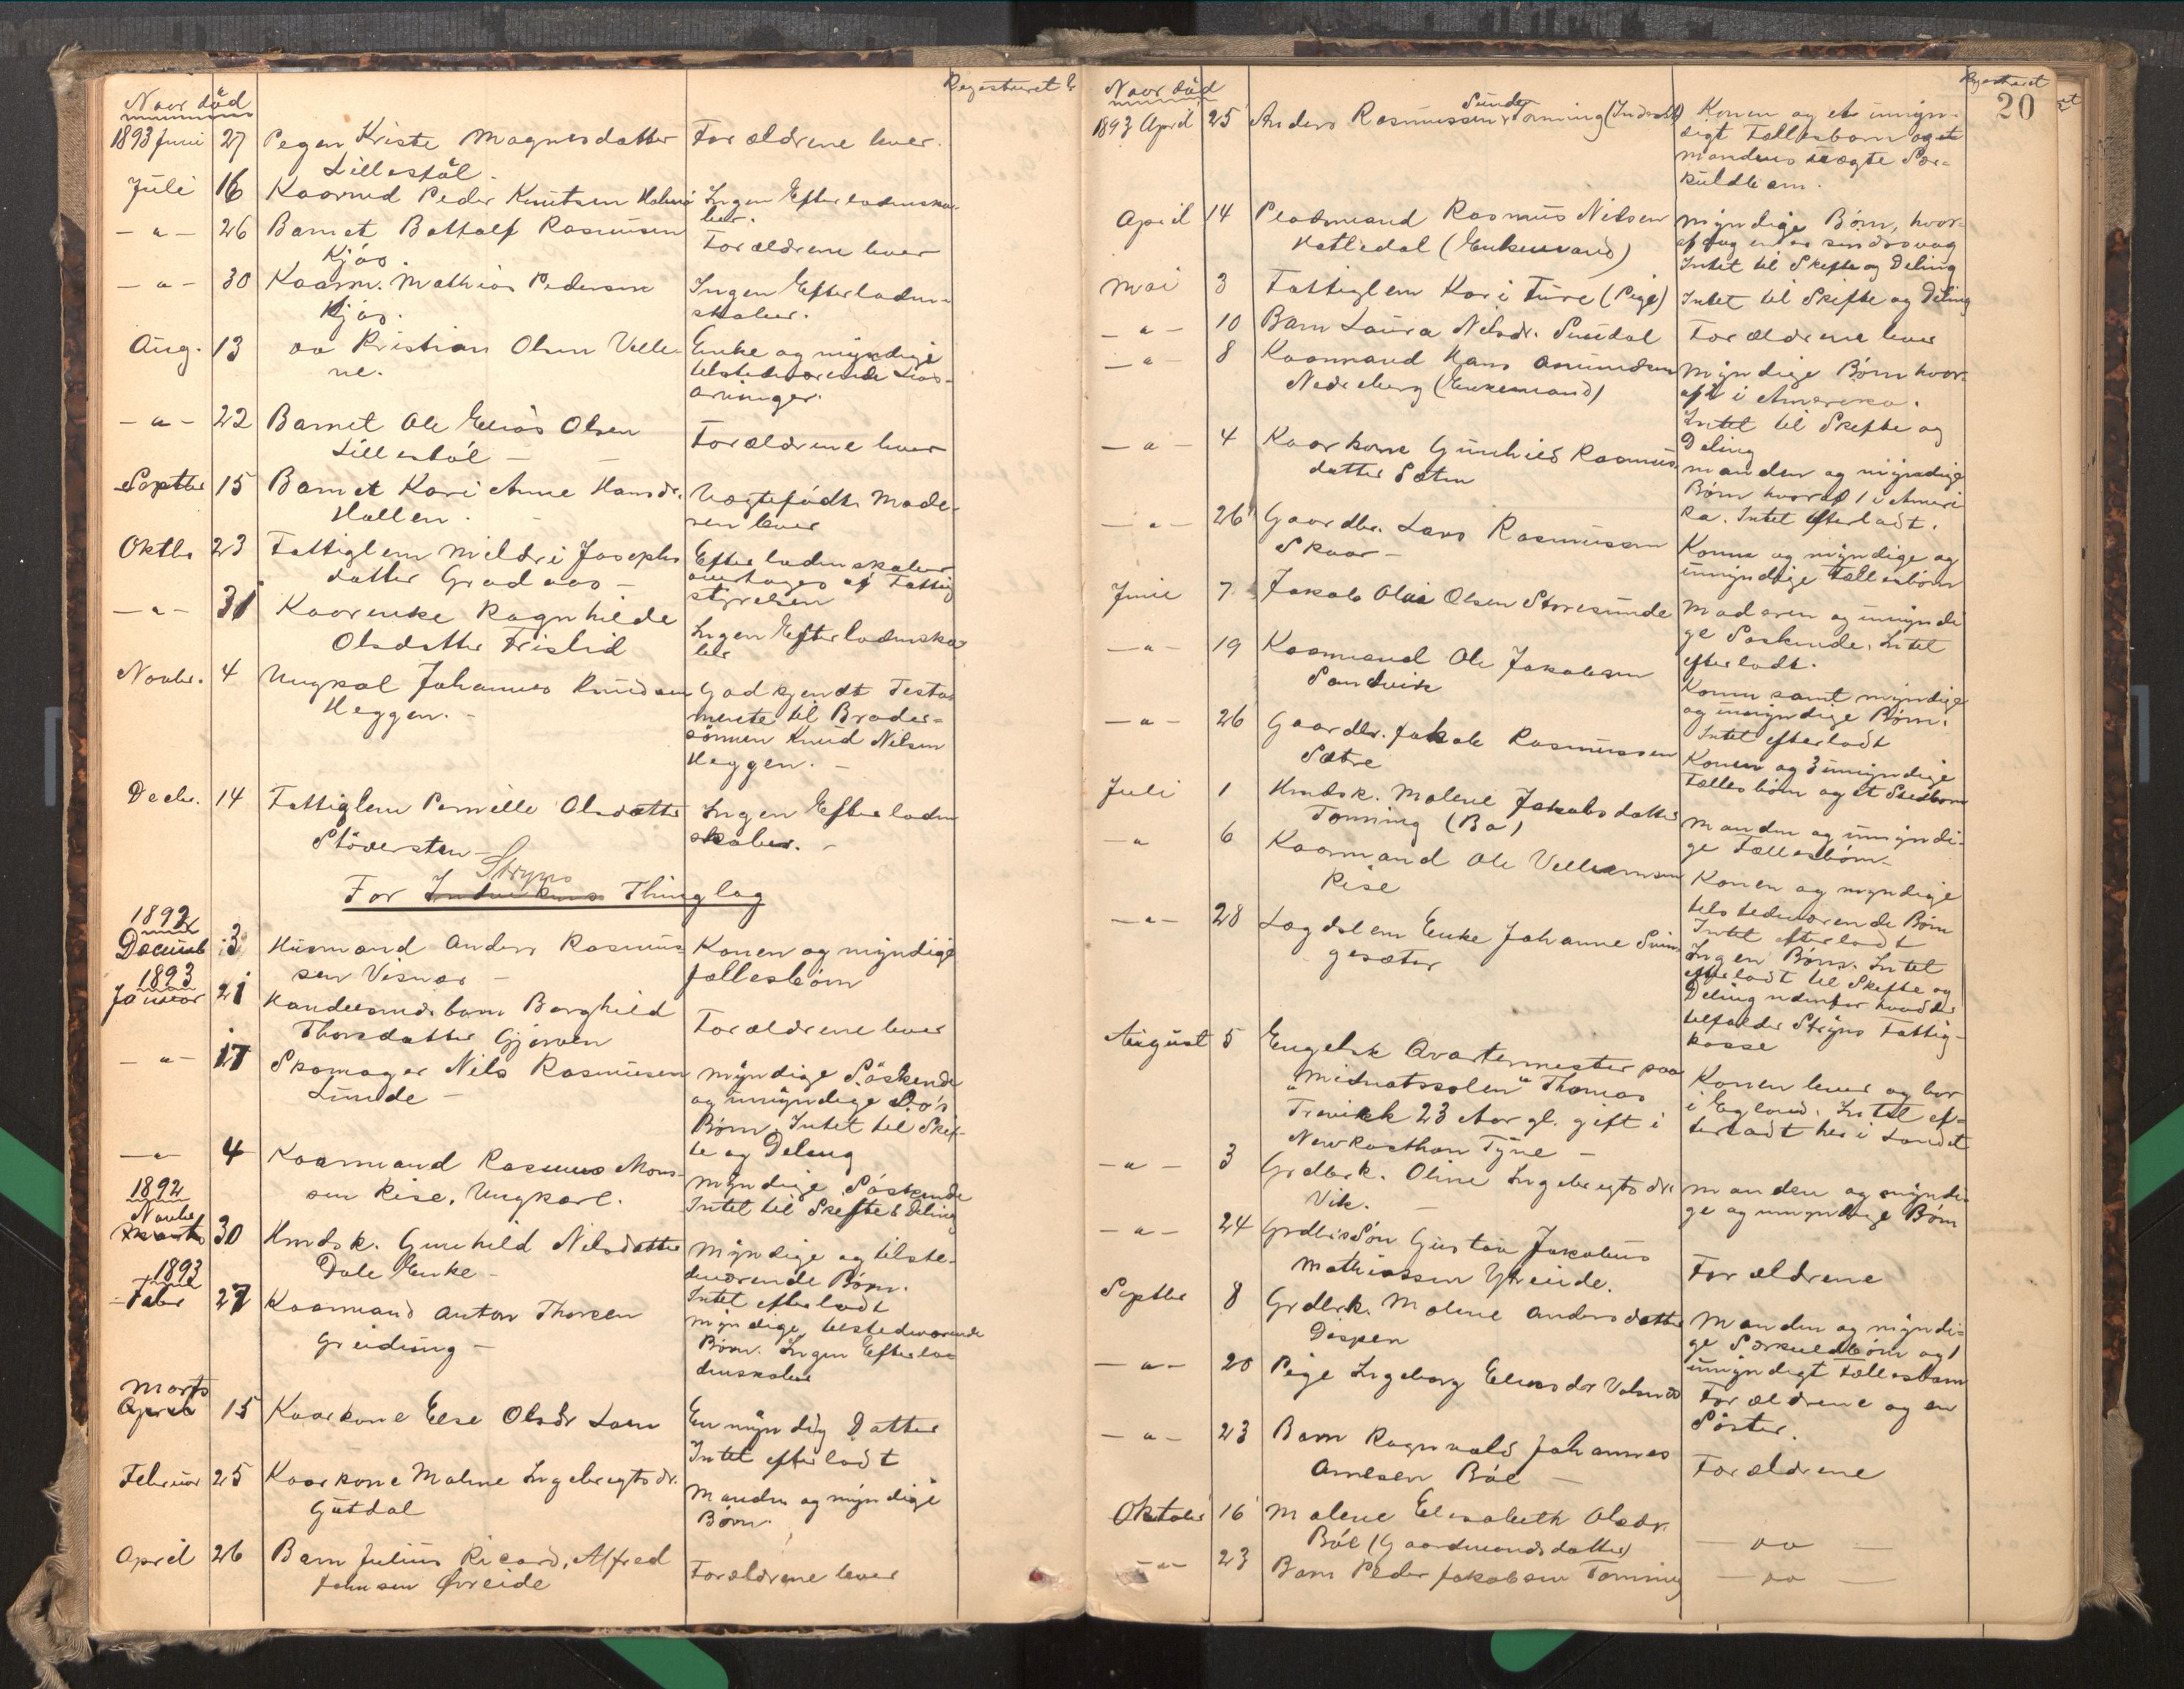 Naar död
Registreret
1893 Juni 27 Pegen Kriste Magnusdatter Forældrene lever.
Lillestöl.
Juli 16 Kaarmd Peder Knutsen Ingen Efterladenska-
ber.
— " — 26 Barnet Rasmusen
Kjös. Forældrene lever
— " — 30 Kaarm. Mathias Pedersen Ingen Efterladen-
Kjös. skaber.
Aug. 13 do Kristian Olsen Velle- Enke og myndige
ne. tilstedeværende Livs-
arvinger.
— " — 22 Barnet Ole Elias Olsen
Lillestöl — Forældrene lever
Septbr 15 Barnet Kari Anne Hansdr. Uægtefödt. Mode-
Hallen. ren lever
Oktbr 23 Fattiglem Mildri Josephs Efterladenskaber
datter Gradaas — overtages af Fattig
styrelsen
— " — 31 Kaarenke Ragnhilde
Olsdatter Frislid Ingen Efterladenska-
ber
Novbr. 4 Ungkal Johannes Knudsen Godkjendt Testa-
Heggen. — mente til Broder-
sönnen Knud Nilsen
Heggen. —
Decbr. 14 Fattiglem Pernille Olsdatter Ingen Efterladen
Stöversten — skaber. —
Stryns
For Indvikens Thinglag
1892
Decemb 3 Husmand Anders Rasmus- Konen og myndige
sen Visnes — fællesbörn
1893
Januar 21 Handelsmds barn Borghild
Thorsdatter Gjörven Forældrene lever
— " — 17 Skomager Nils Rasmusen myndige Söskende
Lunde — og umyndige Do's
Börn. Intet til Skif-
te og Deling
— " — 4 Kaarmand Rasmus Mons- myndige Söskende
sen Rise, Ungkarl. Intet til Skifte & Deling
1892
Novbr
30 Hmdsk. Gunhild Nilsdatter Myndige og tilste-
Dale Enke — deværende Börn.
Intet efterladt
1893
Febr 27 Kaarmand Anton Thorsen myndige tilstedeværende
Greidung — Börn. Ingen Efterla-
denskaber
Marts
April 15 Kaarkone Else Olsdr Loen En myndig Datter
Intet efterladt
Februar 25 Kaarkone Malene Ingebrigtsdr. Manden og myndige
Gutdal Börn.
April 26 Barn Julius Ricard, Alfred
Johnsen Övreide Forældrene lever
Registreret
20
Naar död
Sunde
1893 April 25 Anders Rasmussen Tonning (Inderst) Konen og et umyn-
digt Fællesbarn og et
mandens uægte Sær-
kuldbarn.
April 14 Pladsmand Rasmus Nilsen Myndige Börn, hvor-
Hatledal (Enkemand) af dog en er sindssvag
Intet til Skifte og Deling
Mai 3 Fattiglem Kari Ture (Pige) Intet til Skifte og Deling
— " — 10 Barn Laura Nilsdr. Sundal Forældrene lever
— " — 8 Kaarmand Hans Amundsen Myndige Börn hvor-
Nedreberg (Enkemand) af 2 i Amerika.
Intet til Skifte og
Deling
— " — 4 Kaarkone Gunhild Rasmus manden og myndige
datter Sæten Börn hvoraf 1 i Ameri
ka. Intet efterladt.
— " — 26 Gaardbr. Lars Rasmussen
Skaar — Konen og myndige og
umyndige Fællesbörn
Juni 7 Jakob Olai Olsen Storesunde Moderen og umyndi
ge Söskende. Intet
efterladt.
— " — 19 Kaarmand Ole Jakobsen
Sandvik Konen samt myndige
og umyndige Börn.
Intet efterladt
— " — 26 Gaardbr. Jakob Rasmussen
Sætre Konen og 3 umyndige
Fællesbörn og et Stedbarn
Juli 1 Hmdsk. Malene Jakobsdatter
Tonning (Bö) Manden og umyndi-
ge Fællesbörn
— " 6 Kaarmand Ole Vellumsen
Rise Konen og myndige
tilstedeværende Börn
Intet efterladt
— " — 28 Lægdslem Enke Johanne Svin- Ingen Börn. Intet
gesæter efterladt til Skifte og
Deling udenfor hvad der
tilfalder Stryns Fattig-
kasse
August 5 Engelsk Qvartermester paa
"Midnatssolen" Thomas Konen lever og bor
Trevikk 23 Aar gl. gift i i England. Intet ef-
Newkasthon Tyne — terladt her i Landet
— " — 3 Grdbrk. Oline Ingebrigtsdr. Manden og myndi-
Vik. — ge og umyndige Börn
— " — 24 Grdbrs Sön Gustav Jakobus
Mathiassen Ytreeide. Forældrene
Septbr 8 Grdbrk. Malene Andersdatter Manden og myndi-
Dispen ge Særkuldbörn og 1
umyndigt Fællesbarn
— " — 20 Pige Ingeborg Eliasdr Forældrene og en
Söster.
— " — 23 Barn Ragnvald Johannes
Arnesen Böe — Forældrene
Oktober 16 Malene Elisabeth Olsdr.
Böe (Gaardmandsdatter) — do —
— " — 23 Barn Peder Jakobsen Tonning — do —